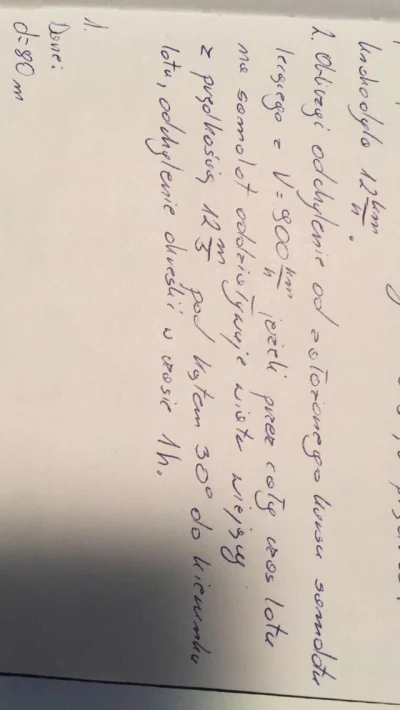 Unchodyla 12 km/h.
2. Obliczyć odchylenie od założonego kursu samolotu
lecącego z V = 900 km/h jeżeli przez cały czas lotu
na samolot oddziaływuje wiatr wiejący
z prędkością 12 m/s pod kątem 30° do kierunku
lotu, odchylenie określić w czasie 1h.
1.
Dane:
d = 80 m